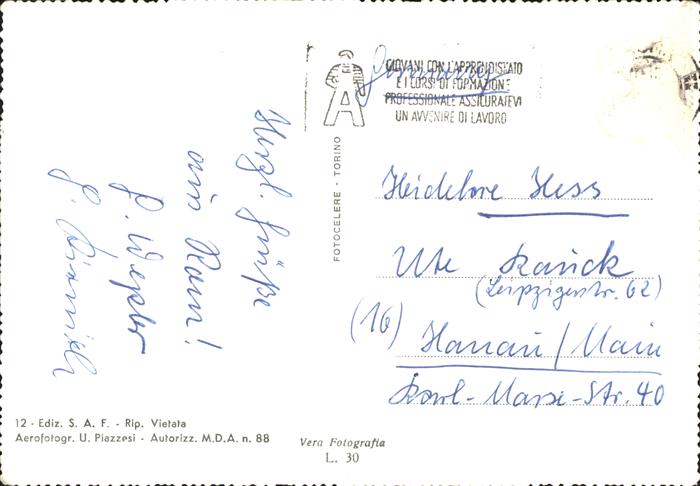 Herzl. Grüße
aus Rom!
GIOVANI CON L'APPRENDISTATO
E I CORSI DI FORMAZIONE
PROFESSIONALE ASSICURATEVI
UN AVVENIRE DI LAVORO
A
FOTOCELERE - TORINO
Heidelore Hess
Ute
(Leipzigerstr. 62)
(16) Hanau/Main
Karl-Marx-Str. 40
12 - Ediz. S. A. F. - Rip. Vietata
Aerofotogr. U. Piazzesi - Autorizz. M.D.A. n. 88
Vera Fotografia
L. 30